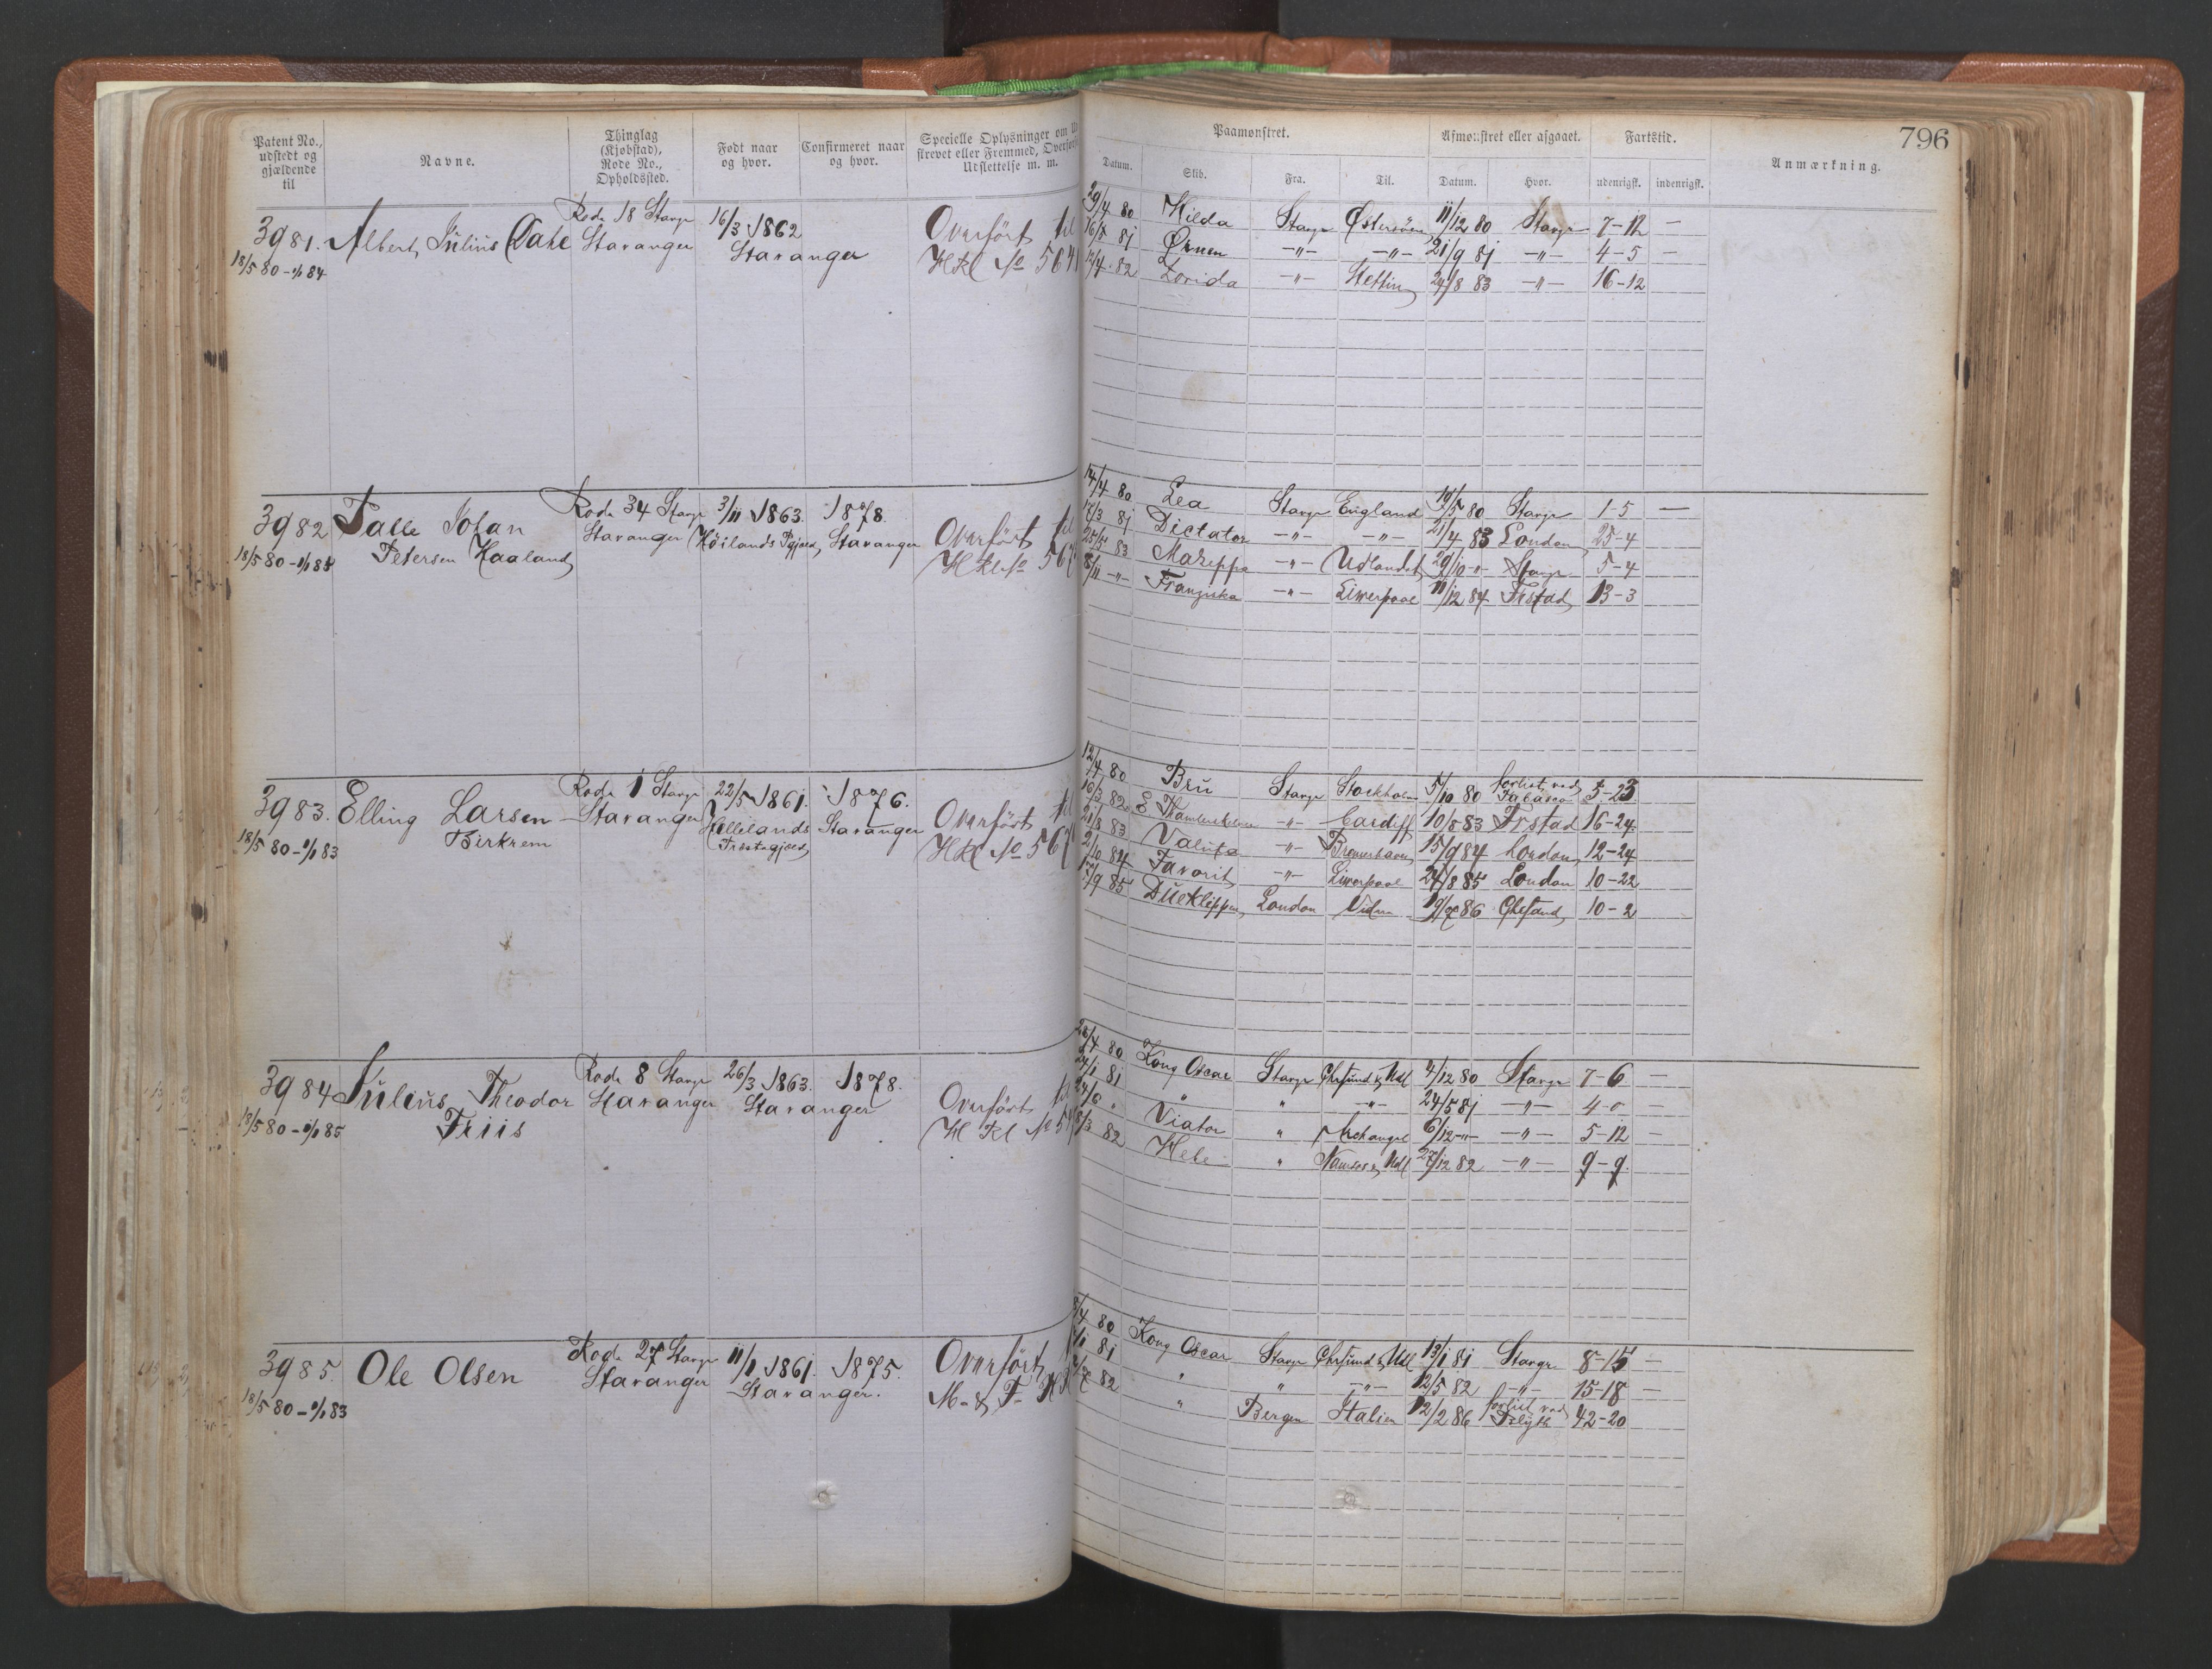 Patent No., udstedt og gjældende til
Navne.
Thinglag (Kjøbstad), Rode No., Opholdssted.
Født naar og hvor.
Confirmeret naar og hvor.
Specielle Oplysninger om
strevet eller Fremmed,
Udslettelse m. m.
Paamønstret.
Afmønstret eller afgaaet.
Fartstid.
796
Datum.
Skib.
Fra.
Til.
Datum.
Hvor.
udenrigsk.
indenrigsk.
Anmærkning.
3981. Albert Julius Dahl
18/5 80 - 1/1 84
Rode 18 Stavgr
Stavanger
16/3 1862
Stavanger
Overført til
HKl No 564
29/4 80 Hilda Stavgr Østersøen 11/12 80 Stavgr 7-12 —
16/5 81 Ørnen —"— —"— 21/9 81 —"— 4-5 —
12/4 82 Zorida —"— Stettin 24/8 83 —"— 16-12
3982 Talle Johan
Petersen Haaland
18/5 80 - 1/1 85
Rode 34 Stavgr
Stavanger
3/11 1863.
Høilands Pgjæld,
1878.
Stavanger
Overført til
HKl No 567
14/4 80 Lea Stavgr England 19/5 80 Stavgr 1-5 —
17/3 81 Dictator —"— —"— 21/4 83 London 25-4
25/5 83 Mazeppa —"— Udlandet 29/10 —"— Stavgr 5-4
8/11 —"— Franziska —"— Liverpool 11/12 84 Frstad 13-3
3983. Elling Larsen
Birkrem
18/5 80 - 1/1 83
Rode 1 Stavgr
Stavanger
22/5 1861.
Hellelands
Præstegjæld
1876.
Stavanger
Overført til
HKl No 567
12/4 80 Bru Stavgr Stockholm 5/10 80 forlist ved Tabasco 5-23
16/3 82 E —"— Cardiff 10/8 83 Frstad 16-24
21/8 83 Valuta —"— Bremerhaven 15/9 84 London 12-24
2/10 84 Favorit —"— Liverpool 24/8 85 London 10-22
17/9 85 Dueklippen London 19/7 86 Chrsand 10-2
3984 Julius Theodor
Friis
18/5 80 - 1/1 85
Rode 8 Stavgr
Stavanger
26/3 1863.
Stavanger
1878.
Overført til
HKl No
26/4 80 Kong Oscar Stavgr Chrsund & Udl 4/12 80 Stavgr 7-6 —
24/1 81 " " —"— 24/5 81 —"— 4-0 —
Viator " Archangel 6/12 —"— —"— 5-12 —
18/3 82 Hebe " Namsos & Udl 27/12 82 —"— 9-9.
3985. Ole Olsen
18/5 80 - 1/1 83
Rode 27 Stavgr
Stavanger
11/1 1861.
Stavanger.
1875.
Overført
M- & F- H
/4 80 Kong Oscar Stavgr Chrsund & Udl 13/1 81 Stavgr. 8-15 —
/1 81 " " —"— 12/5 82 —"— 15-18 —
/7 82 " Bergen Italien 12/2 86 forlist ved Blyth 42-20